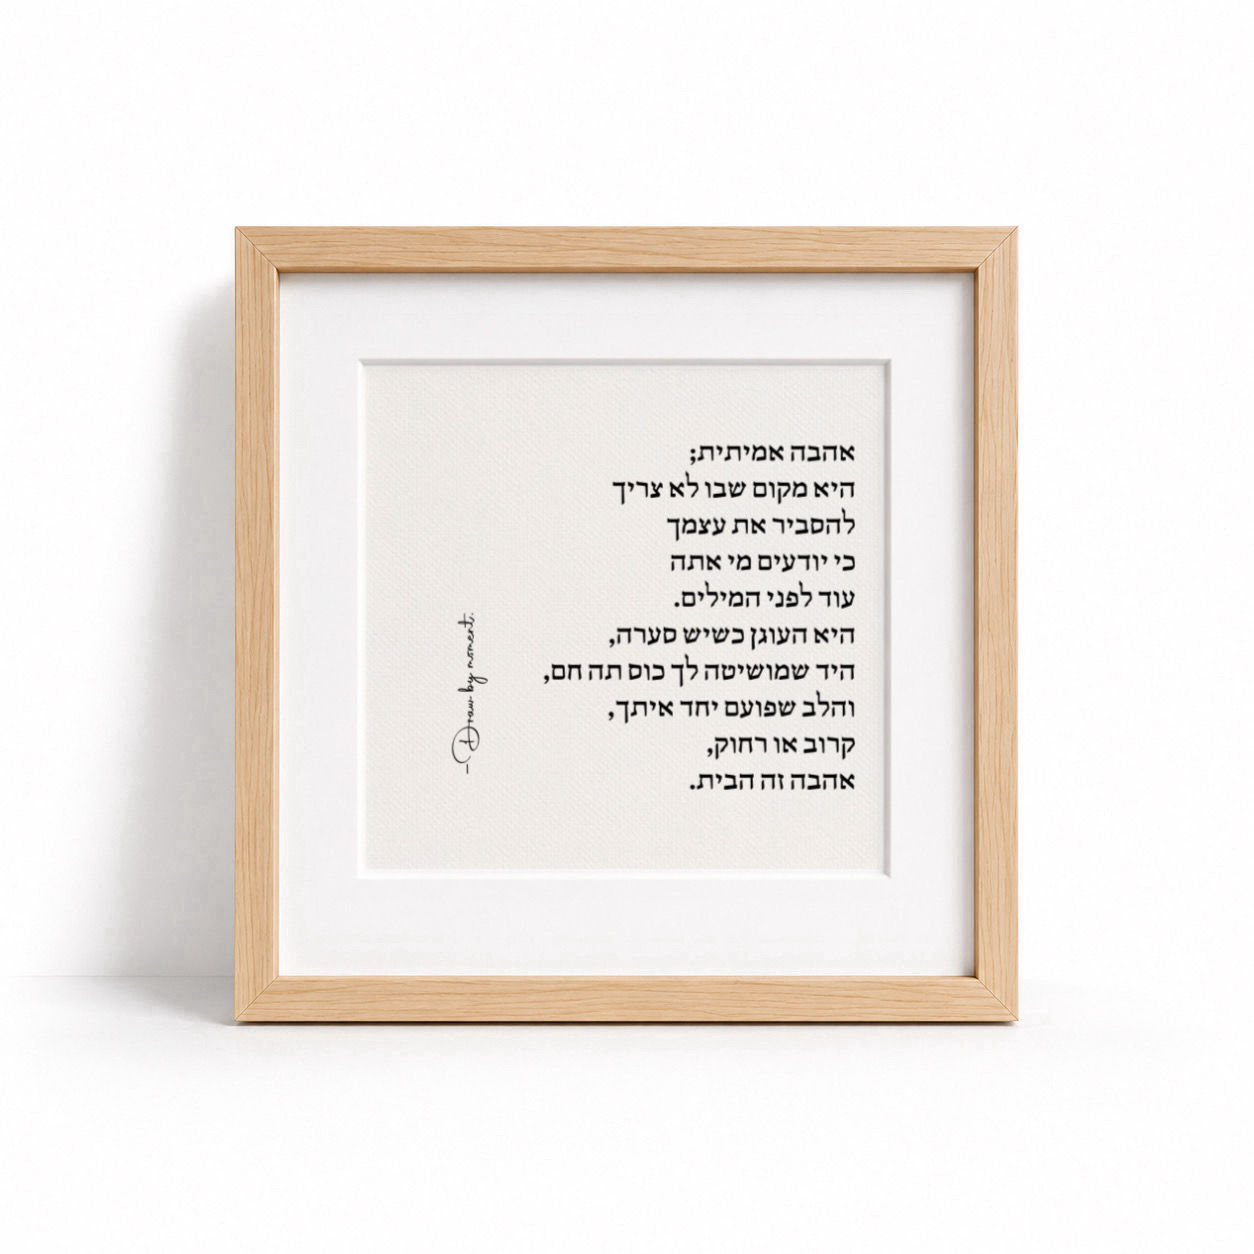 אהבה אמיתית;
היא מקום שבו לא צריך
להסביר את עצמך
כי יודעים מי אתה
עוד לפני המילים.
היא העוגן כשיש סערה,
היד שמושיטה לך כוס תה חם,
והלב שפועם יחד איתך,
קרוב או רחוק,
אהבה זה הבית.
-Draw by moment.